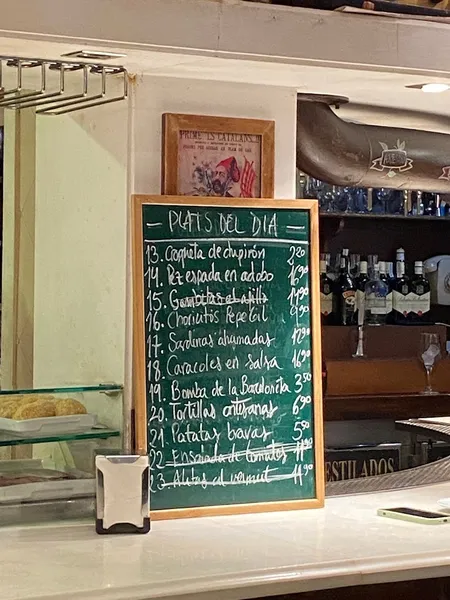 PRIMER ELS CATALANS!!
PLATS DEL DIA
13. Croqueta de chipirón 2'20
14. Pez espada en adobo 16'90
15. Gambitas al ajillo 14'90
16. Choricitos Pepe Gil 9'90
17. Sardinas ahumadas 12'90
18. Caracoles en salsa 16'90
19. Bomba de la Barceloneta 3'50
20. Tortillas artesanas 6'90
21. Patatas bravas 5'50
22 Ensalada de tomates 11'90
23. Alitas al vermut 11'90
ESTILADOS